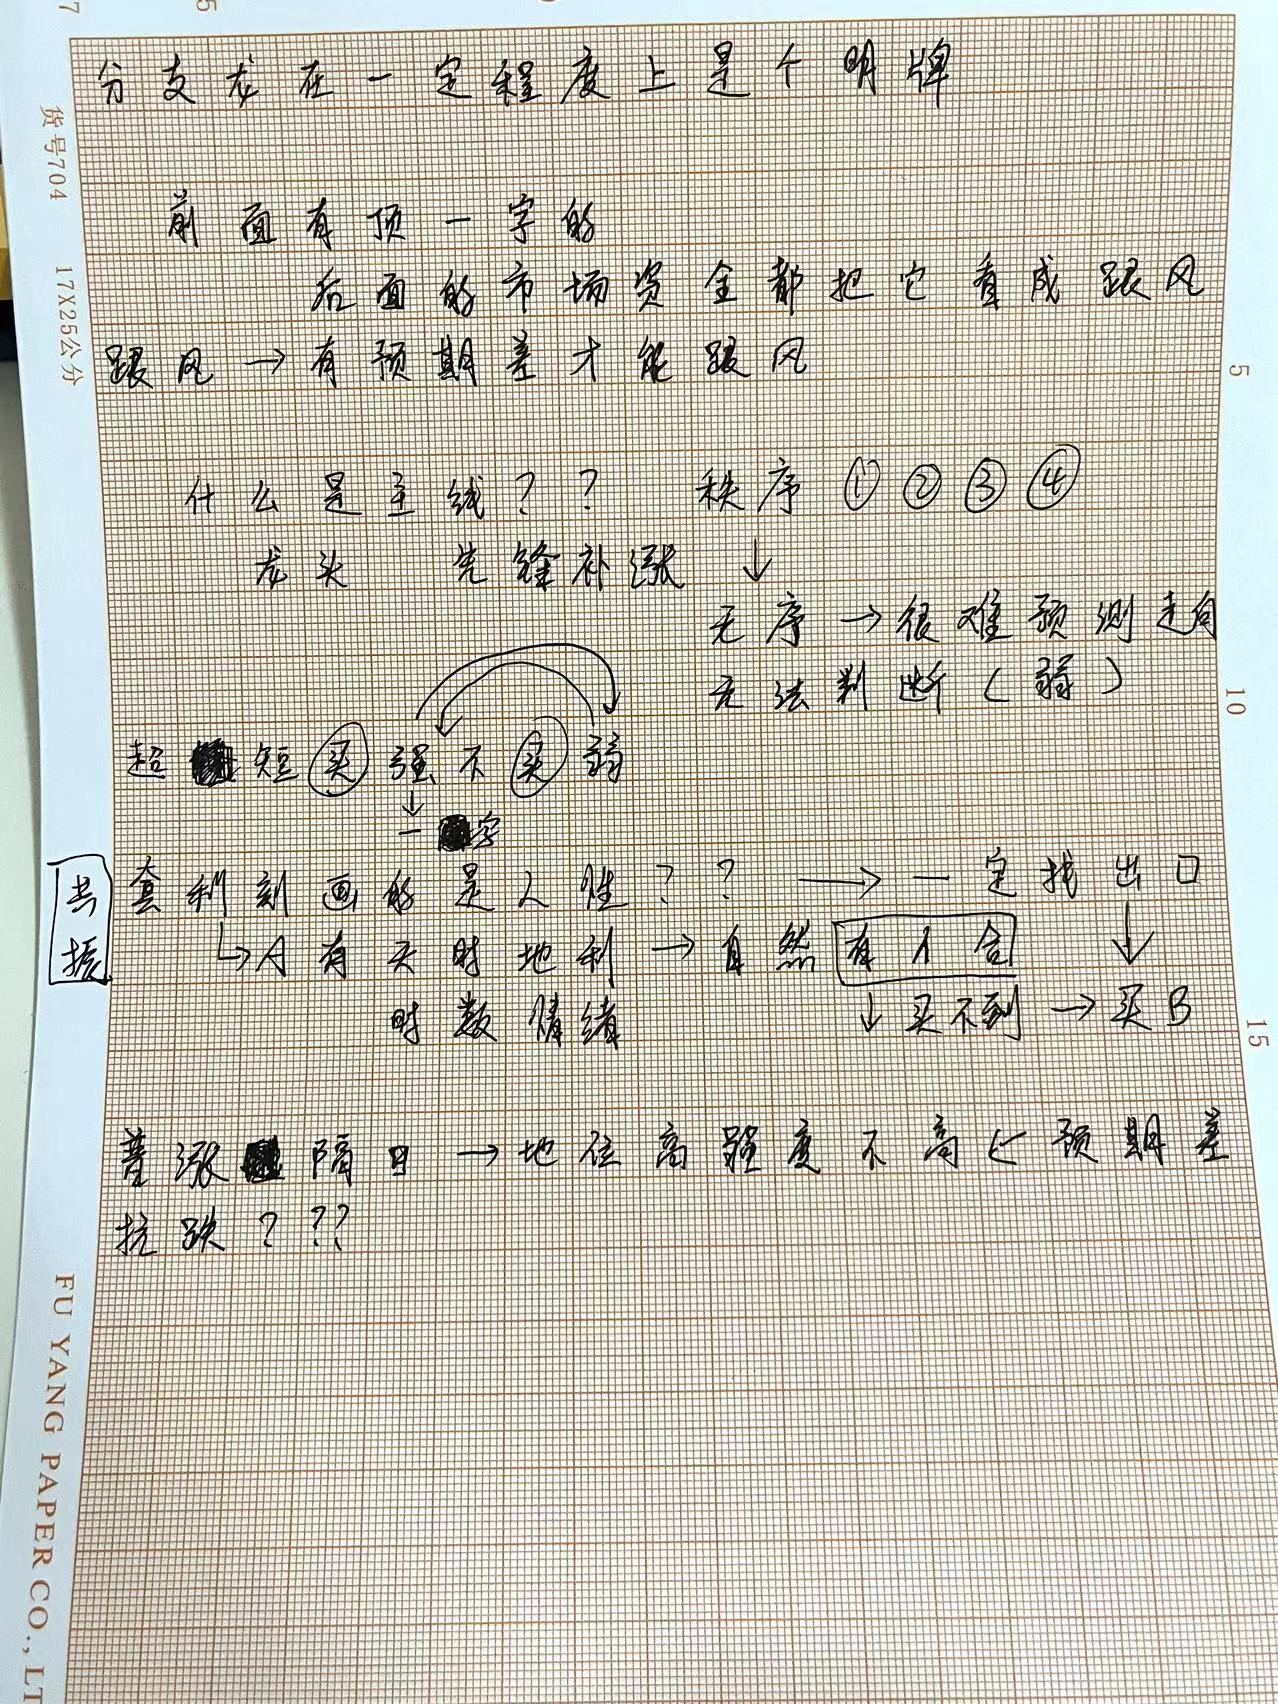 7
5
货号704 17X25公分
分支龙在一定程度上是个明牌
前面有顶一字的
后面的市场资金都把它看成跟风
跟风→有预期差才能跟风
5
什么是主线？？ 秩序①②③④
龙头 先锋补涨 ↓
无序→很难预测走向
无法判断(弱)
10
超短买强不买弱
↓
一字
共振
套利刻画的是人性？？→一定找出口
↳A有天时地利→自然有人合 ↓
时数情绪 ↓买不到→买B
15
普涨隔日→地位高强度不高←预期差
抗跌？？？
FU YANG PAPER CO., LT